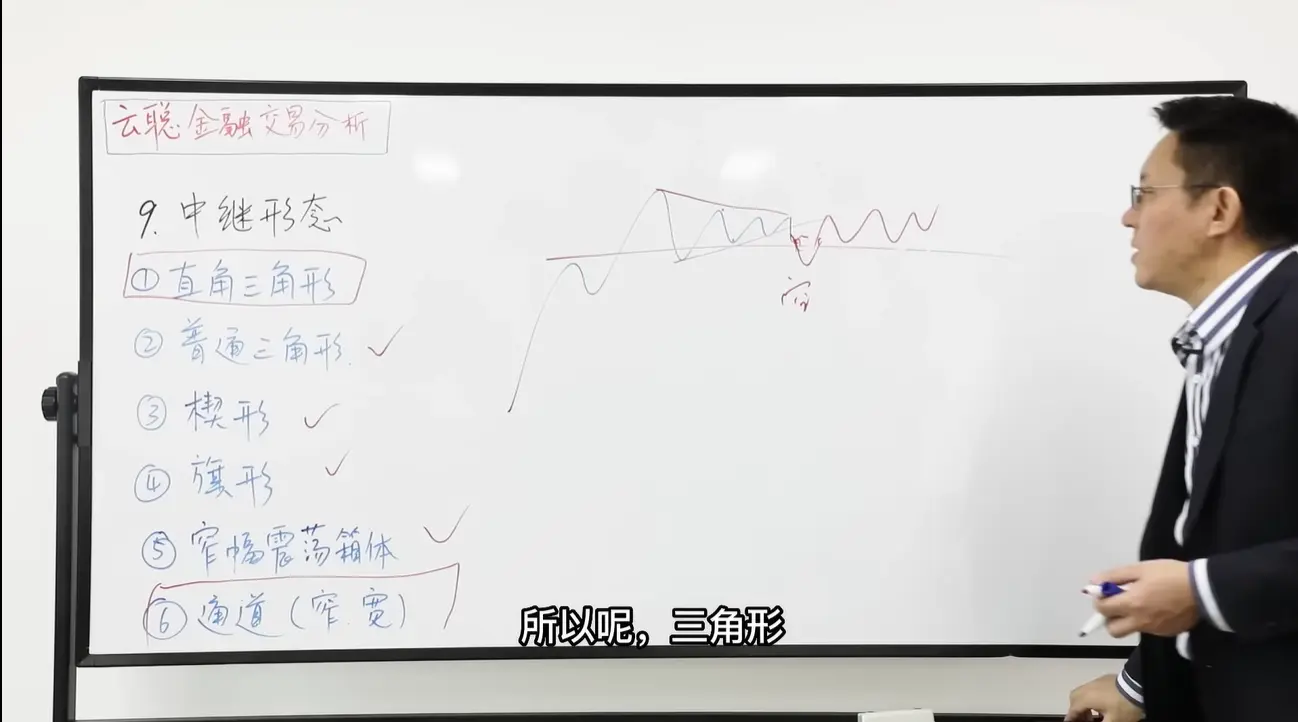 云聪金融交易分析
9. 中继形态
① 直角三角形
② 普通三角形
③ 楔形
④ 旗形
⑤ 窄幅震荡箱体
⑥ 通道(窄.宽)
所以呢，三角形